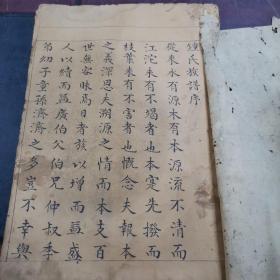 鍾氏族譜序
從來水有源木有本源流不清而
江沱未有不塌者也本寔先撥而
枝葉未有不害者也慨念夫報本
之義深恩夫溯源之情而本支百
世無容昧焉日者族以增而益盛
人以續而益廣伯父伯兄仲叔季
弟幼子童孫濟濟之多豈不幸與